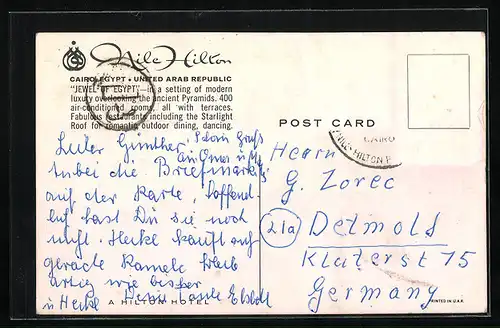 Nile Hilton
CAIRO, EGYPT • UNITED ARAB REPUBLIC
"JEWEL OF EGYPT"—in a setting of modern
luxury overlooking the ancient Pyramids. 400
air-conditioned rooms, all with terraces.
Fabulous restaurants including the Starlight
Roof for romantic outdoor dining, dancing.
Lieber Gunther!
die Briefmarke
auf der Karte, hoffent-
lich hast Du sie noch
nicht. Heike kauft auf
gerade Kamele
artig wie bisher
u Heike
A HILTON HOTEL
POST CARD
CAIRO
NILE-HILTON P.
Herrn
G. Zorec
21a Detmold
Klüterst 75
Germany
PRINTED IN U.A.R.